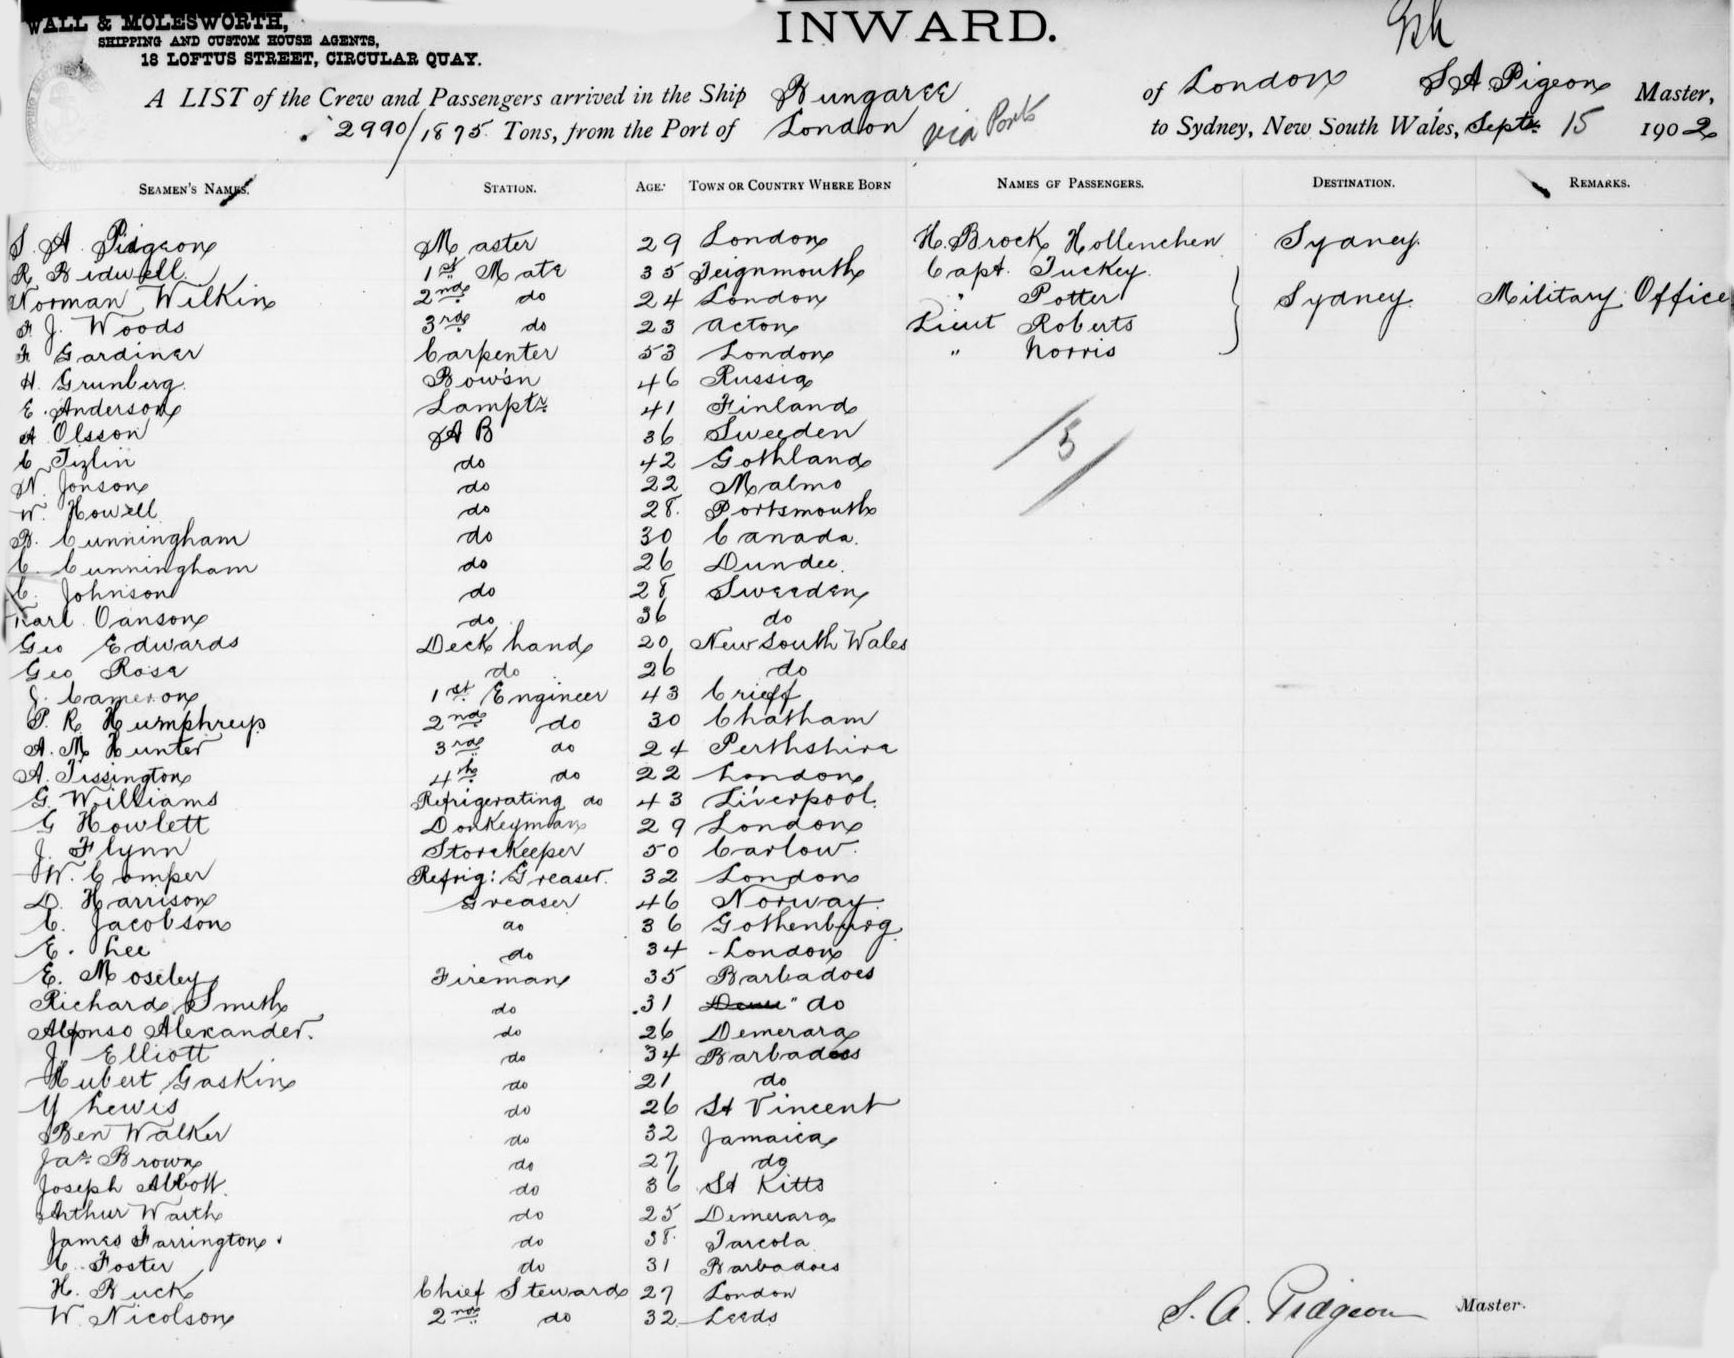 WALL & MOLESWORTH,
SHIPPING AND CUSTOM HOUSE AGENTS,
18 LOFTUS STREET, CIRCULAR QUAY.
INWARD.
A LIST of the Crew and Passengers arrived in the Ship Bungaree of London S A Pigeon Master,
2990/1875 Tons, from the Port of London via Ports to Sydney, New South Wales, Septr 15 1902
SEAMEN'S NAMES. STATION. AGE. TOWN OR COUNTRY WHERE BORN NAMES OF PASSENGERS. DESTINATION. REMARKS.
S. A. Pidgeon Master 29 London H. Brock Hollenchen Sydney.
R Bidwell. 1st Mate 35 Teignmouth Capt. Tuckey.
Norman Wilkin 2nd do 24 London " Potter Sydney. Military Office
F J. Woods 3rd do 23 Acton Lieut Roberts
F Gardiner Carpenter 53 London " Norris
H. Grunberg. Bow'sn 46 Russia
E. Anderson Lamptr 41 Finland
A Olsson A B 36 Sweeden 5
C Tizlin do 42 Gothland
N. Jonson do 22 Malmo
W. Howell do 28. Portsmouth
B. Cunningham do 30 Canada.
C. Cunningham do 26 Dundee.
C. Johnson do 28 Sweeden
Karl Oanson do. 36 do
Geo Edwards Deck hand 20 New South Wales
Geo Rose do 26 do
J. Cameron 1st Engineer 43 Crieff
P. R Humphreys 2nd do 30 Chatham
A. M Hunter 3rd do 24 Perthshire
A. Tissington 4th do 22 London
G. Williams Refrigerating do 43 Liverpool.
G Howlett Donkeyman 29 London
J. Flynn Storekeeper 50 Carlow.
W. Comper Refrig: Greaser. 32 London
D. Harrison Greaser 46 Norway.
C. Jacobson do 36 Gothenburg.
E. Lee do 34 London
E. Moseley Fireman 35 Barbadoes
Richard Smith do 31 " do
Alfonso Alexander. do 26 Demerara
J. Elliott do 34 Barbadoes
Hubert Gaskin do 21 do
Y Lewis do 26 St Vincent
Ben Walker do 32 Jamaica
Jas Brown do 27 do
Joseph Abbott. do 36 St Kitts
Arthur Waith do 25 Demerara
James Farrington. do 38. Tarcola
C. Foster do 31 Barbadoes
H. Buck Chief Steward 27 London
W. Nicolson 2nd do 32 Leeds
S. A. Pidgeon Master.